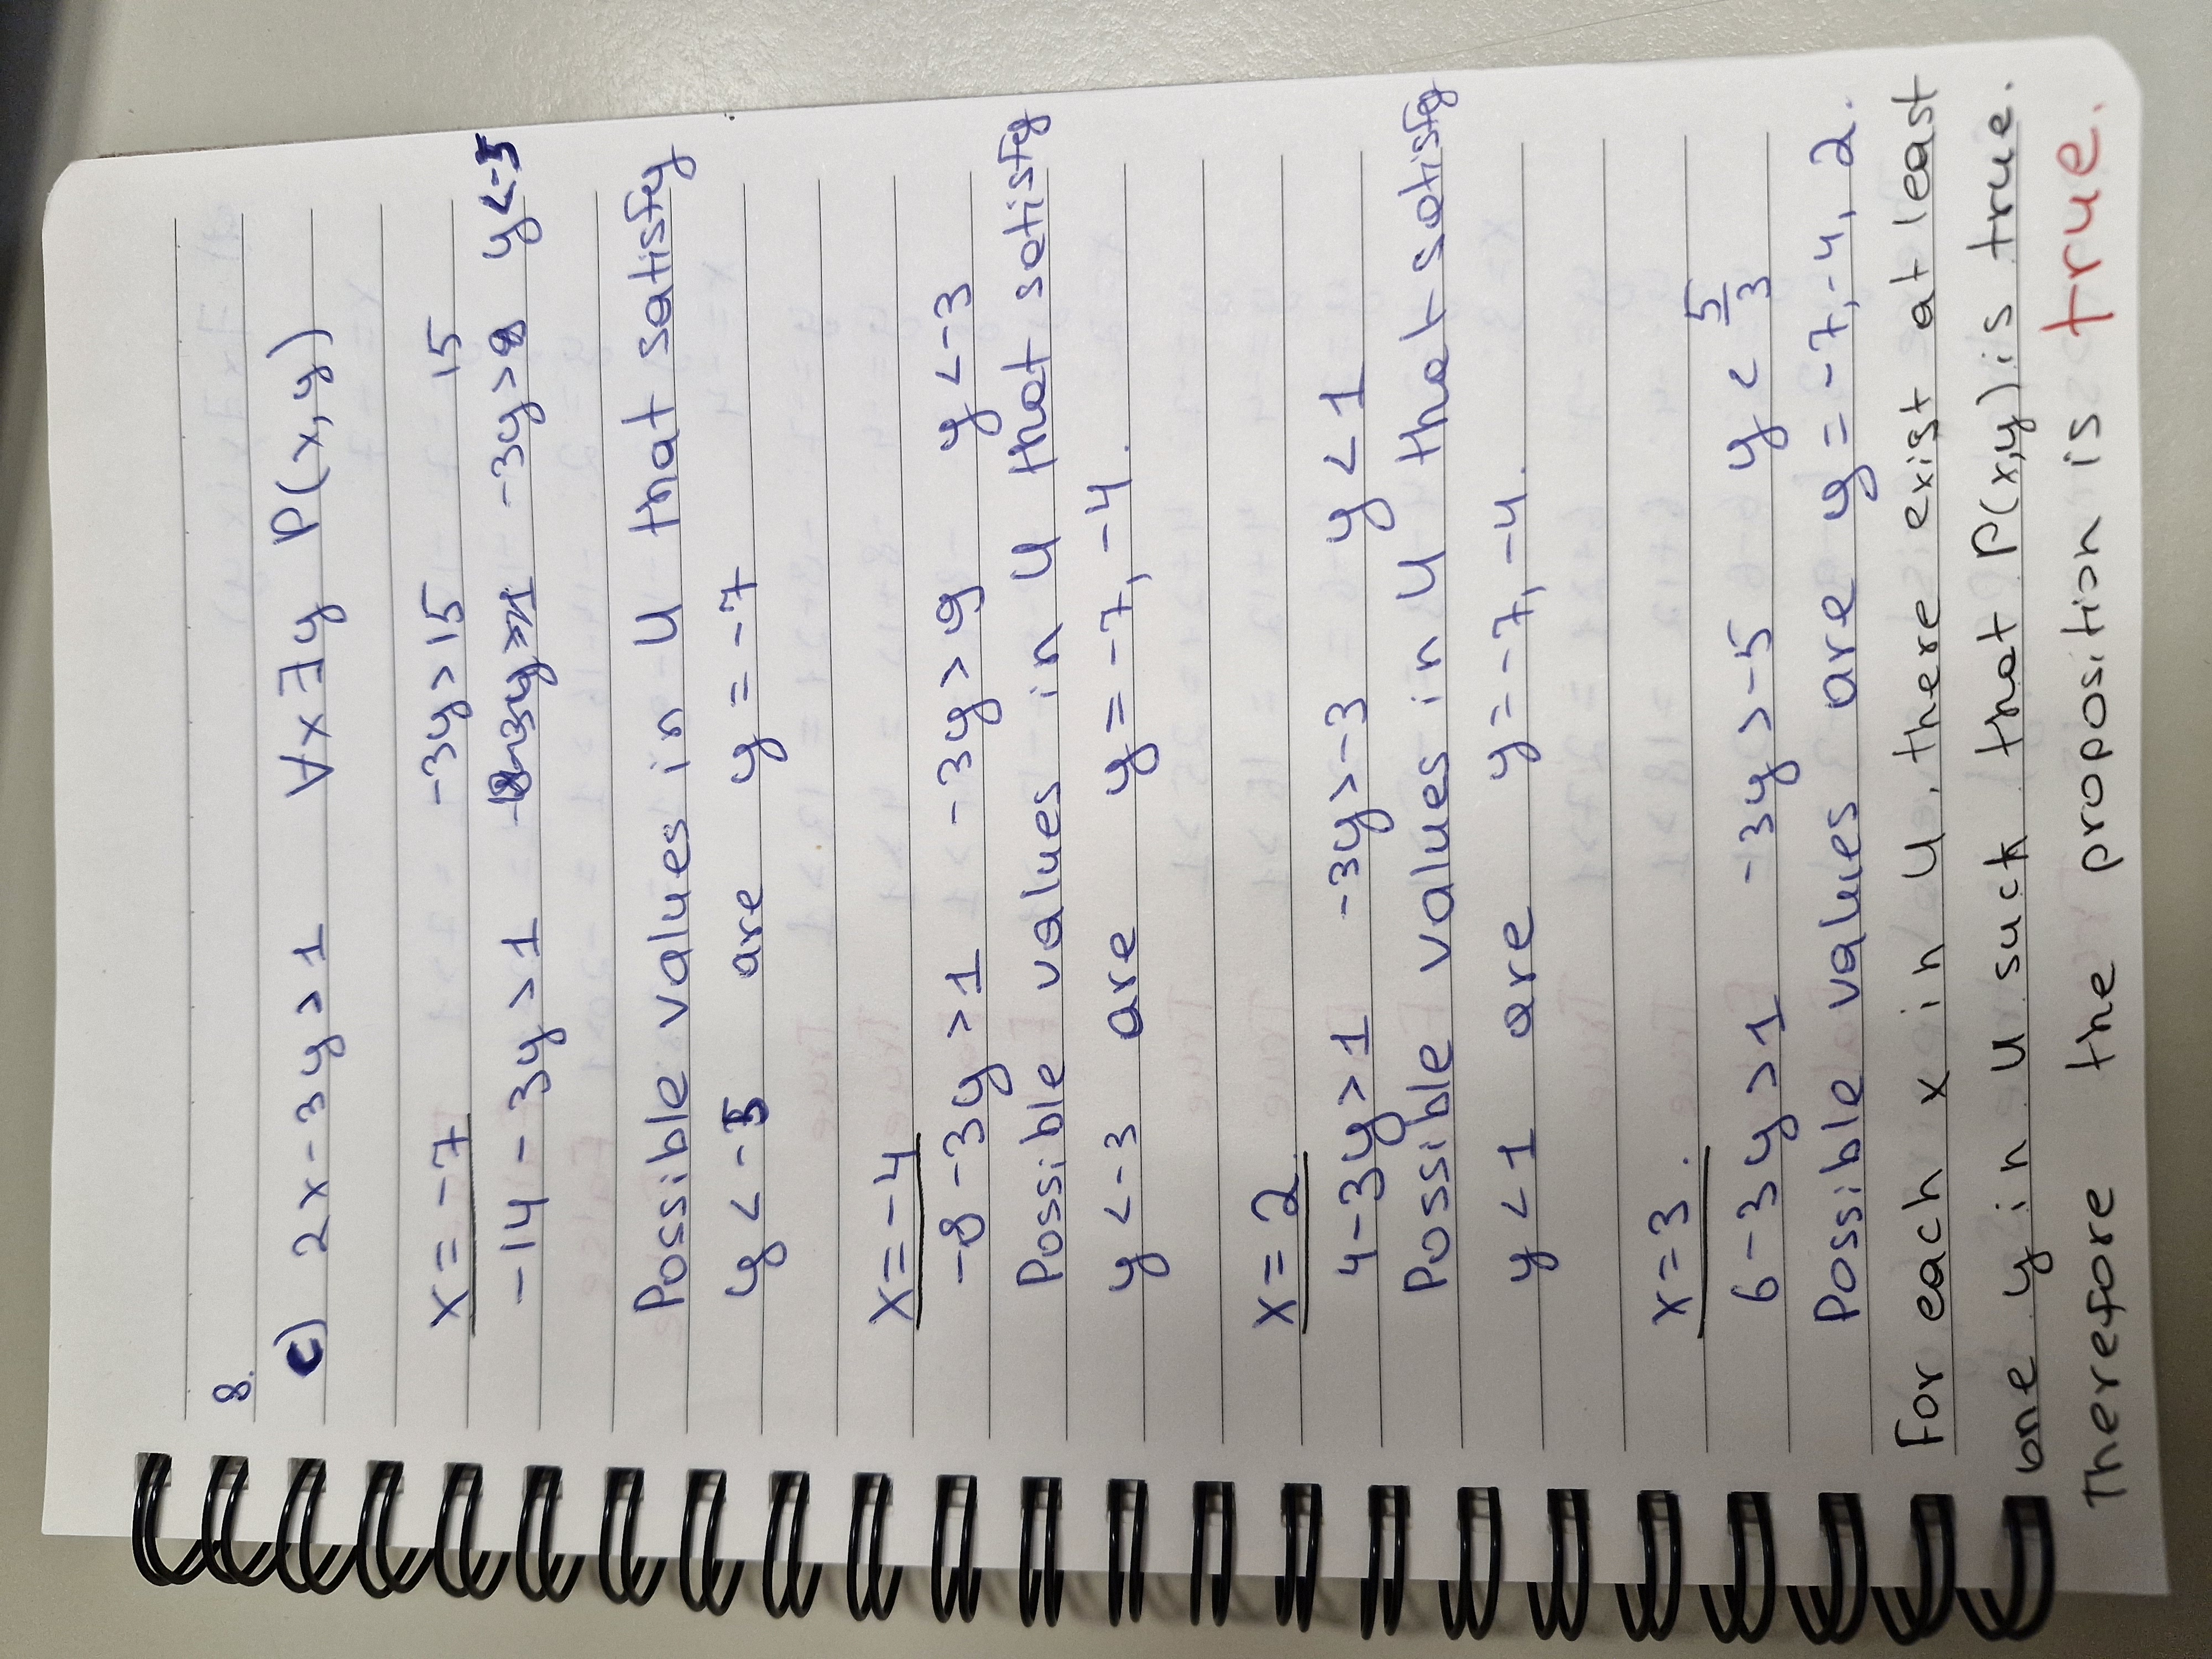 8.
c) 2x-3y>1 ∀x∃y P(x,y)
x=-7 -3y>15 15
-14-3y>1 -3y>9 y<-5
Possible values in U that satisfy
y<-5 are y=-7
x=-4
-8-3y>1 -3y>9 y<-3
Possible values in U that satisfy
y<-3 are y=-7,-4.
x=2
4-3y>1 -3y>-3 y<1
Possible values in U that satisfy
y<1 are y=-7,-4.
x=3.
6-3y>1 -3y>-5 y<5/3
Possible values are y=-7,-4, 2.
For each x in U, there exist at least
one y in U such that P(x,y) is true.
Therefore the proposition is true.